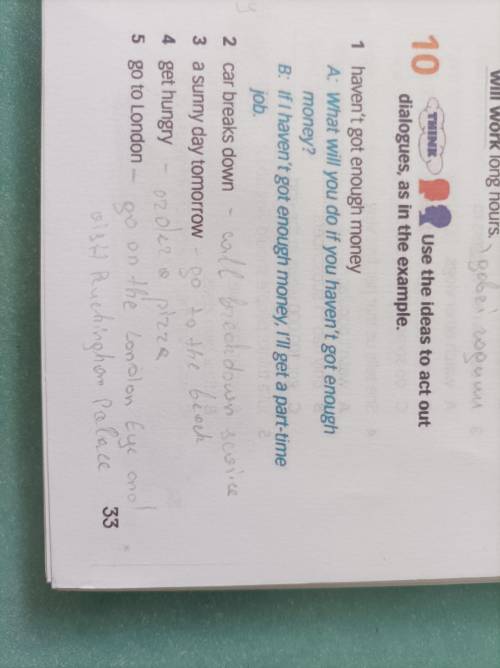 Will work long hours.
10 THINK Use the ideas to act out
dialogues, as in the example.
1 haven't got enough money
A: What will you do if you haven't got enough
money?
B: If I haven't got enough money, I'll get a part-time
job.
2 car breaks down - call breakdown service
3 a sunny day tomorrow - go to the beach
4 get hungry - order a pizza
5 go to London - go on the London Eye and
visit Buckingham Palace
33